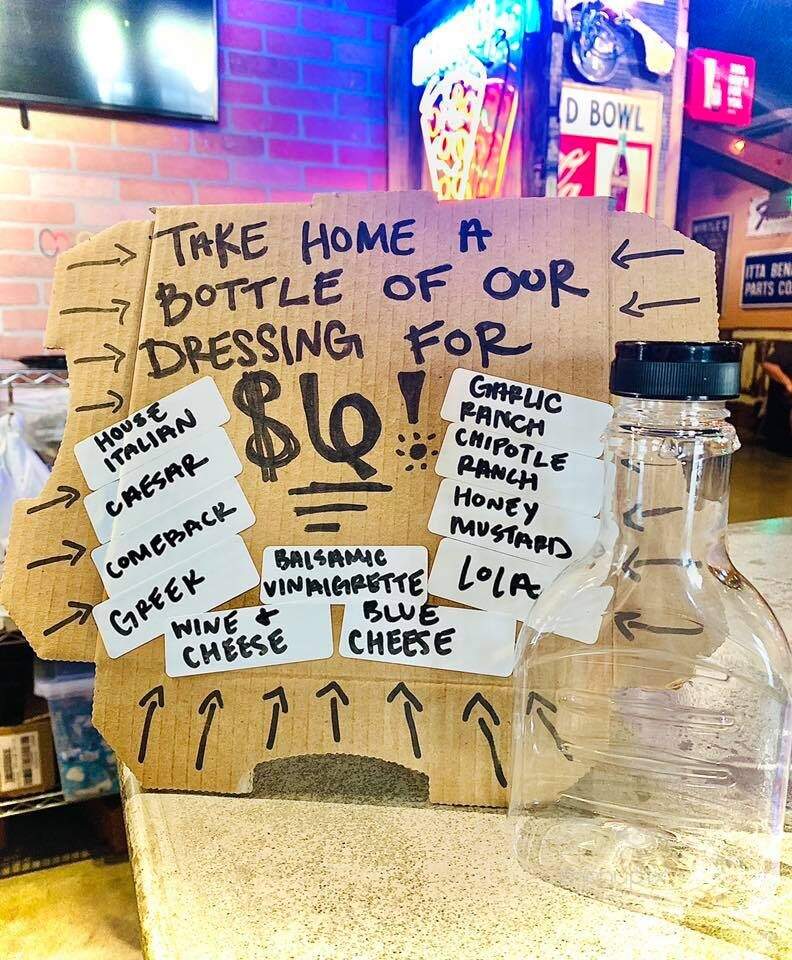 D BOWL
TAKE HOME A
BOTTLE OF OUR
DRESSING FOR
$6!
ITTA BEN
PARTS CO
HOUSE
ITALIAN
CAESAR
COMEBACK
GREEK
WINE &
CHEESE
BALSAMIC
VINAIGRETTE
BLUE
CHEESE
GARLIC
RANCH
CHIPOTLE
RANCH
HONEY
MUSTARD
LOLA